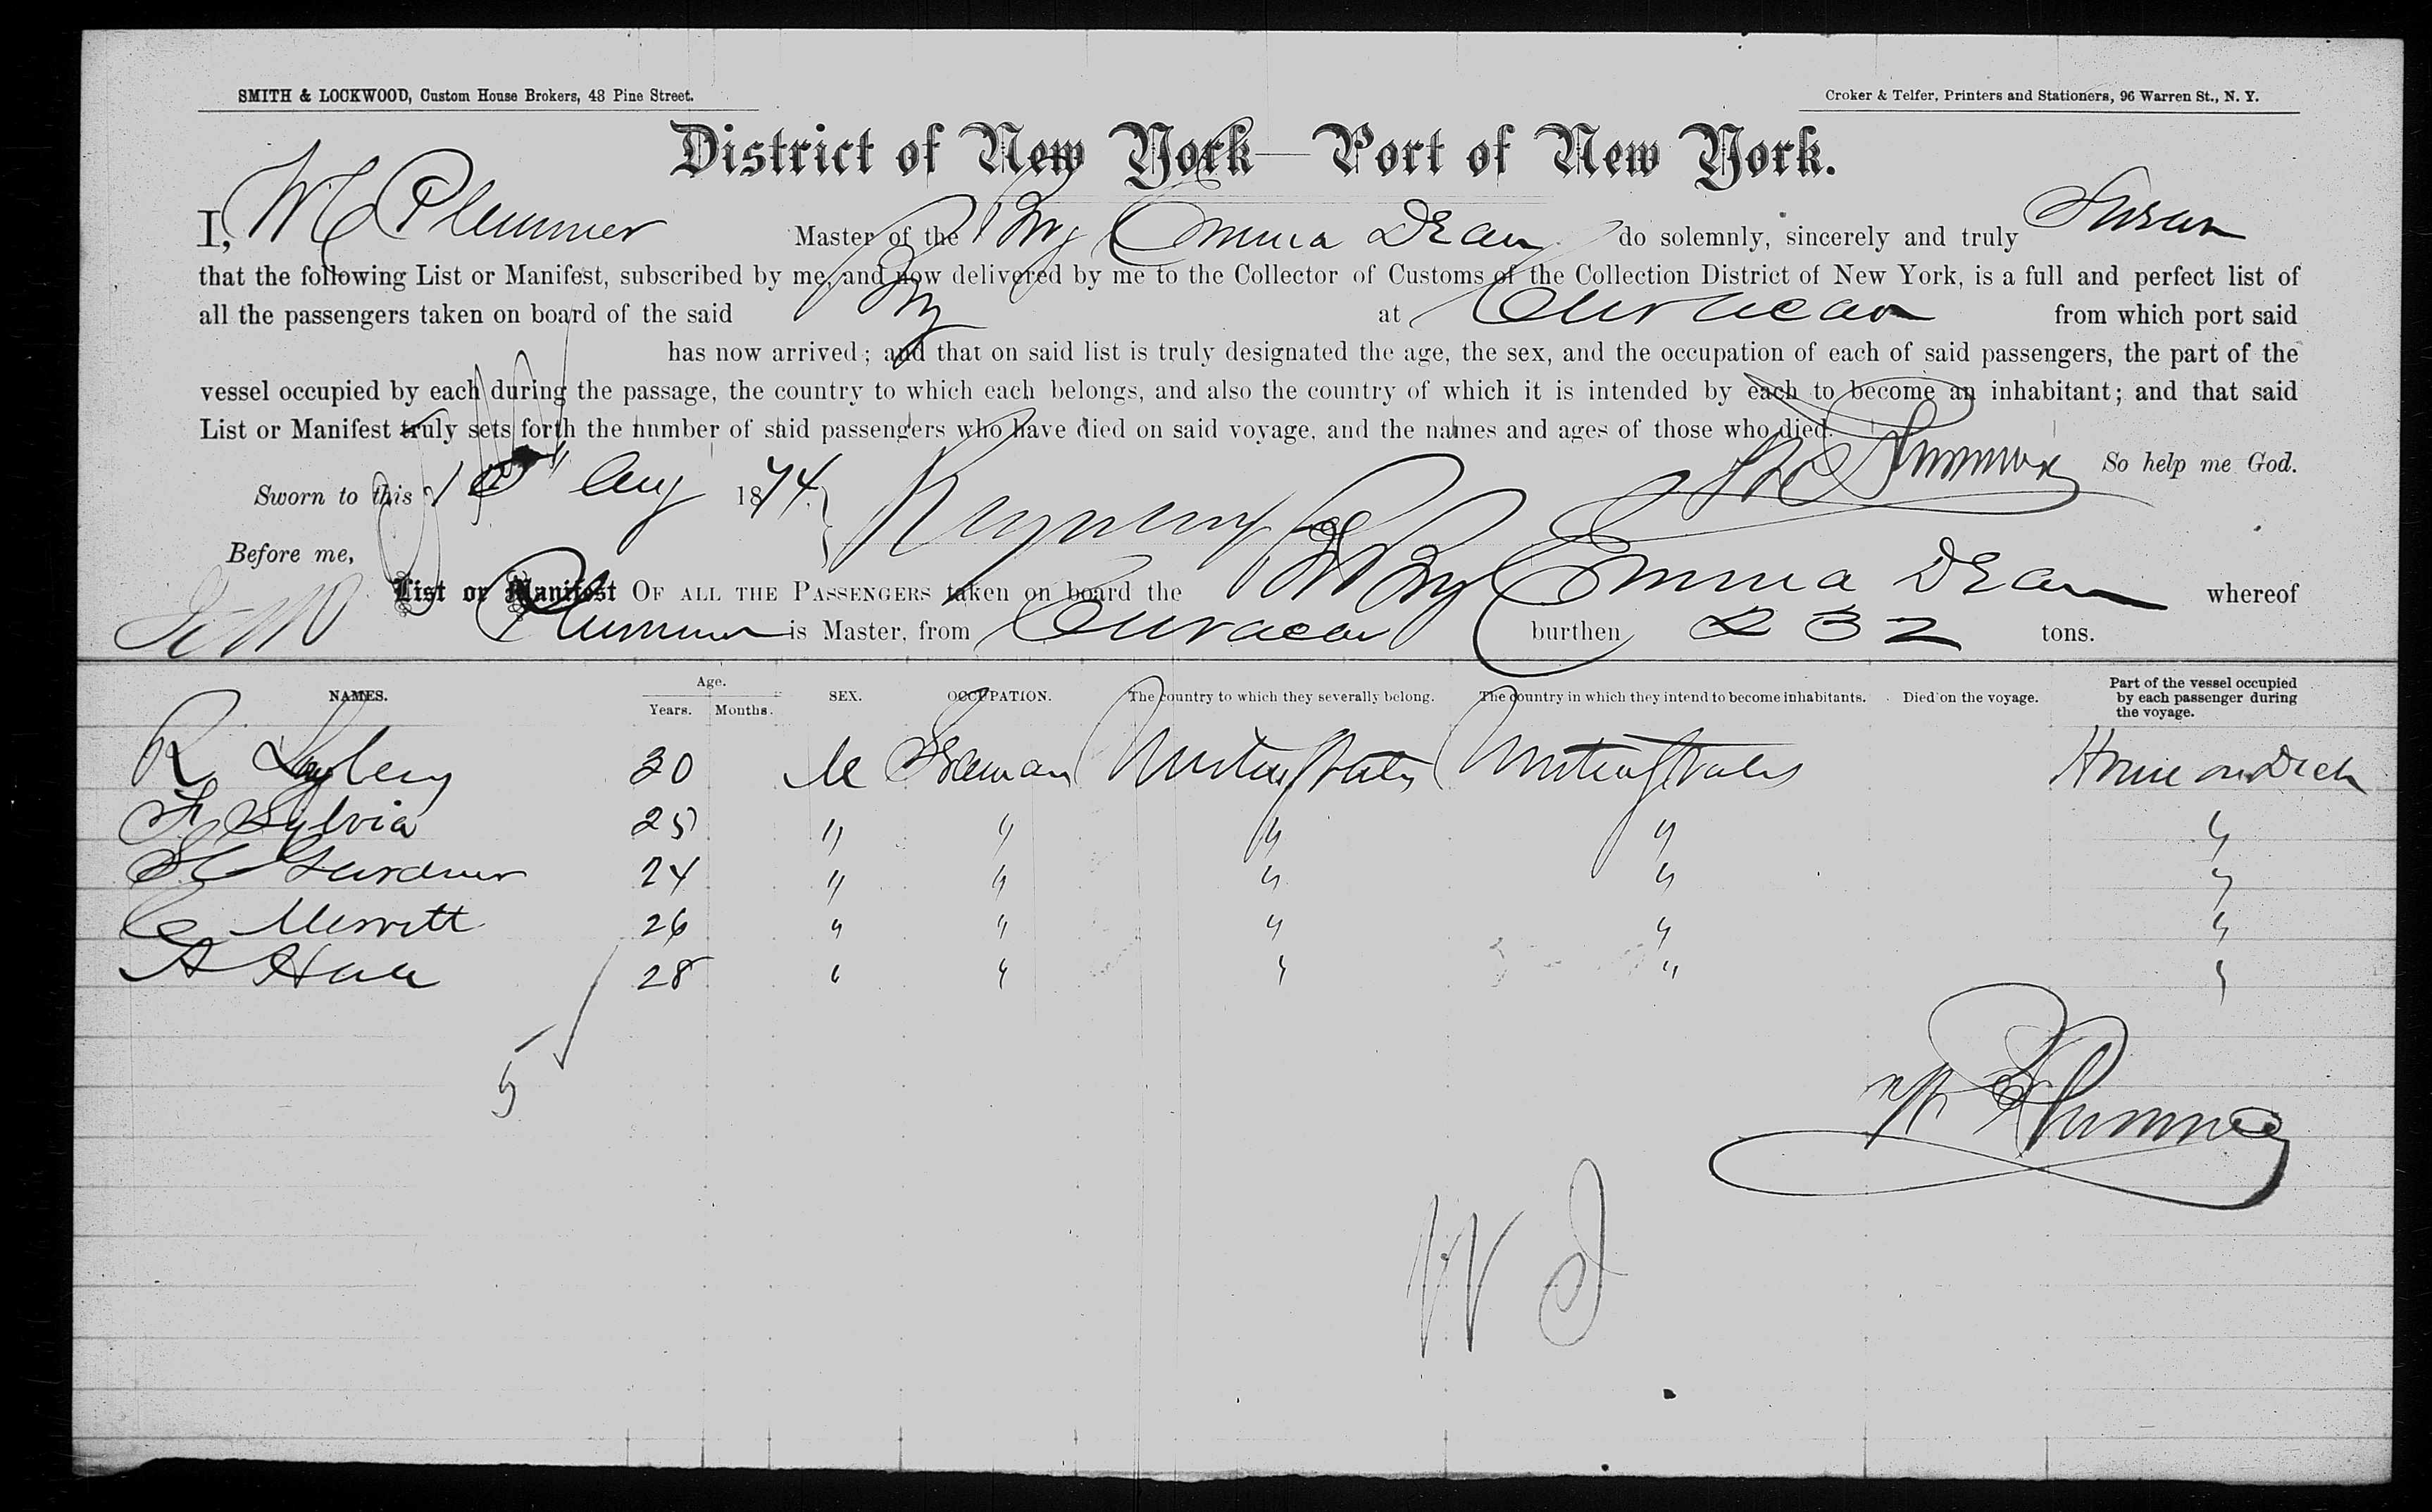 SMITH & LOCKWOOD, Custom House Brokers, 48 Pine Street.
Croker & Telfer, Printers and Stationers, 96 Warren St., N. Y.
District of New York—Port of New York.
I, W C Plummer Master of the Brig Emma Dean do solemnly, sincerely and truly Swear
that the following List or Manifest, subscribed by me, and now delivered by me to the Collector of Customs of the Collection District of New York, is a full and perfect list of
all the passengers taken on board of the said Brig at Curacao from which port said
has now arrived; and that on said list is truly designated the age, the sex, and the occupation of each of said passengers, the part of the
vessel occupied by each during the passage, the country to which each belongs, and also the country of which it is intended by each to become an inhabitant; and that said
List or Manifest truly sets forth the number of said passengers who have died on said voyage, and the names and ages of those who died.
W C Plummer So help me God.
Sworn to this Aug 1874
Before me,
List or Manifest OF ALL THE PASSENGERS taken on board the Brig Emma Dean whereof
Plummer is Master, from Curacao burthen 232 tons.
NAMES. Age. Years. Months. SEX. OCCUPATION. The country to which they severally belong. The country in which they intend to become inhabitants. Died on the voyage. Part of the vessel occupied by each passenger during the voyage.
R 30 M Seaman United States United States House on Deck
F Sylvia 25 " " " " "
Gardner 24 " " " " "
C Merritt 26 " " " " "
A 28 " " " " "
5
W C Plummer